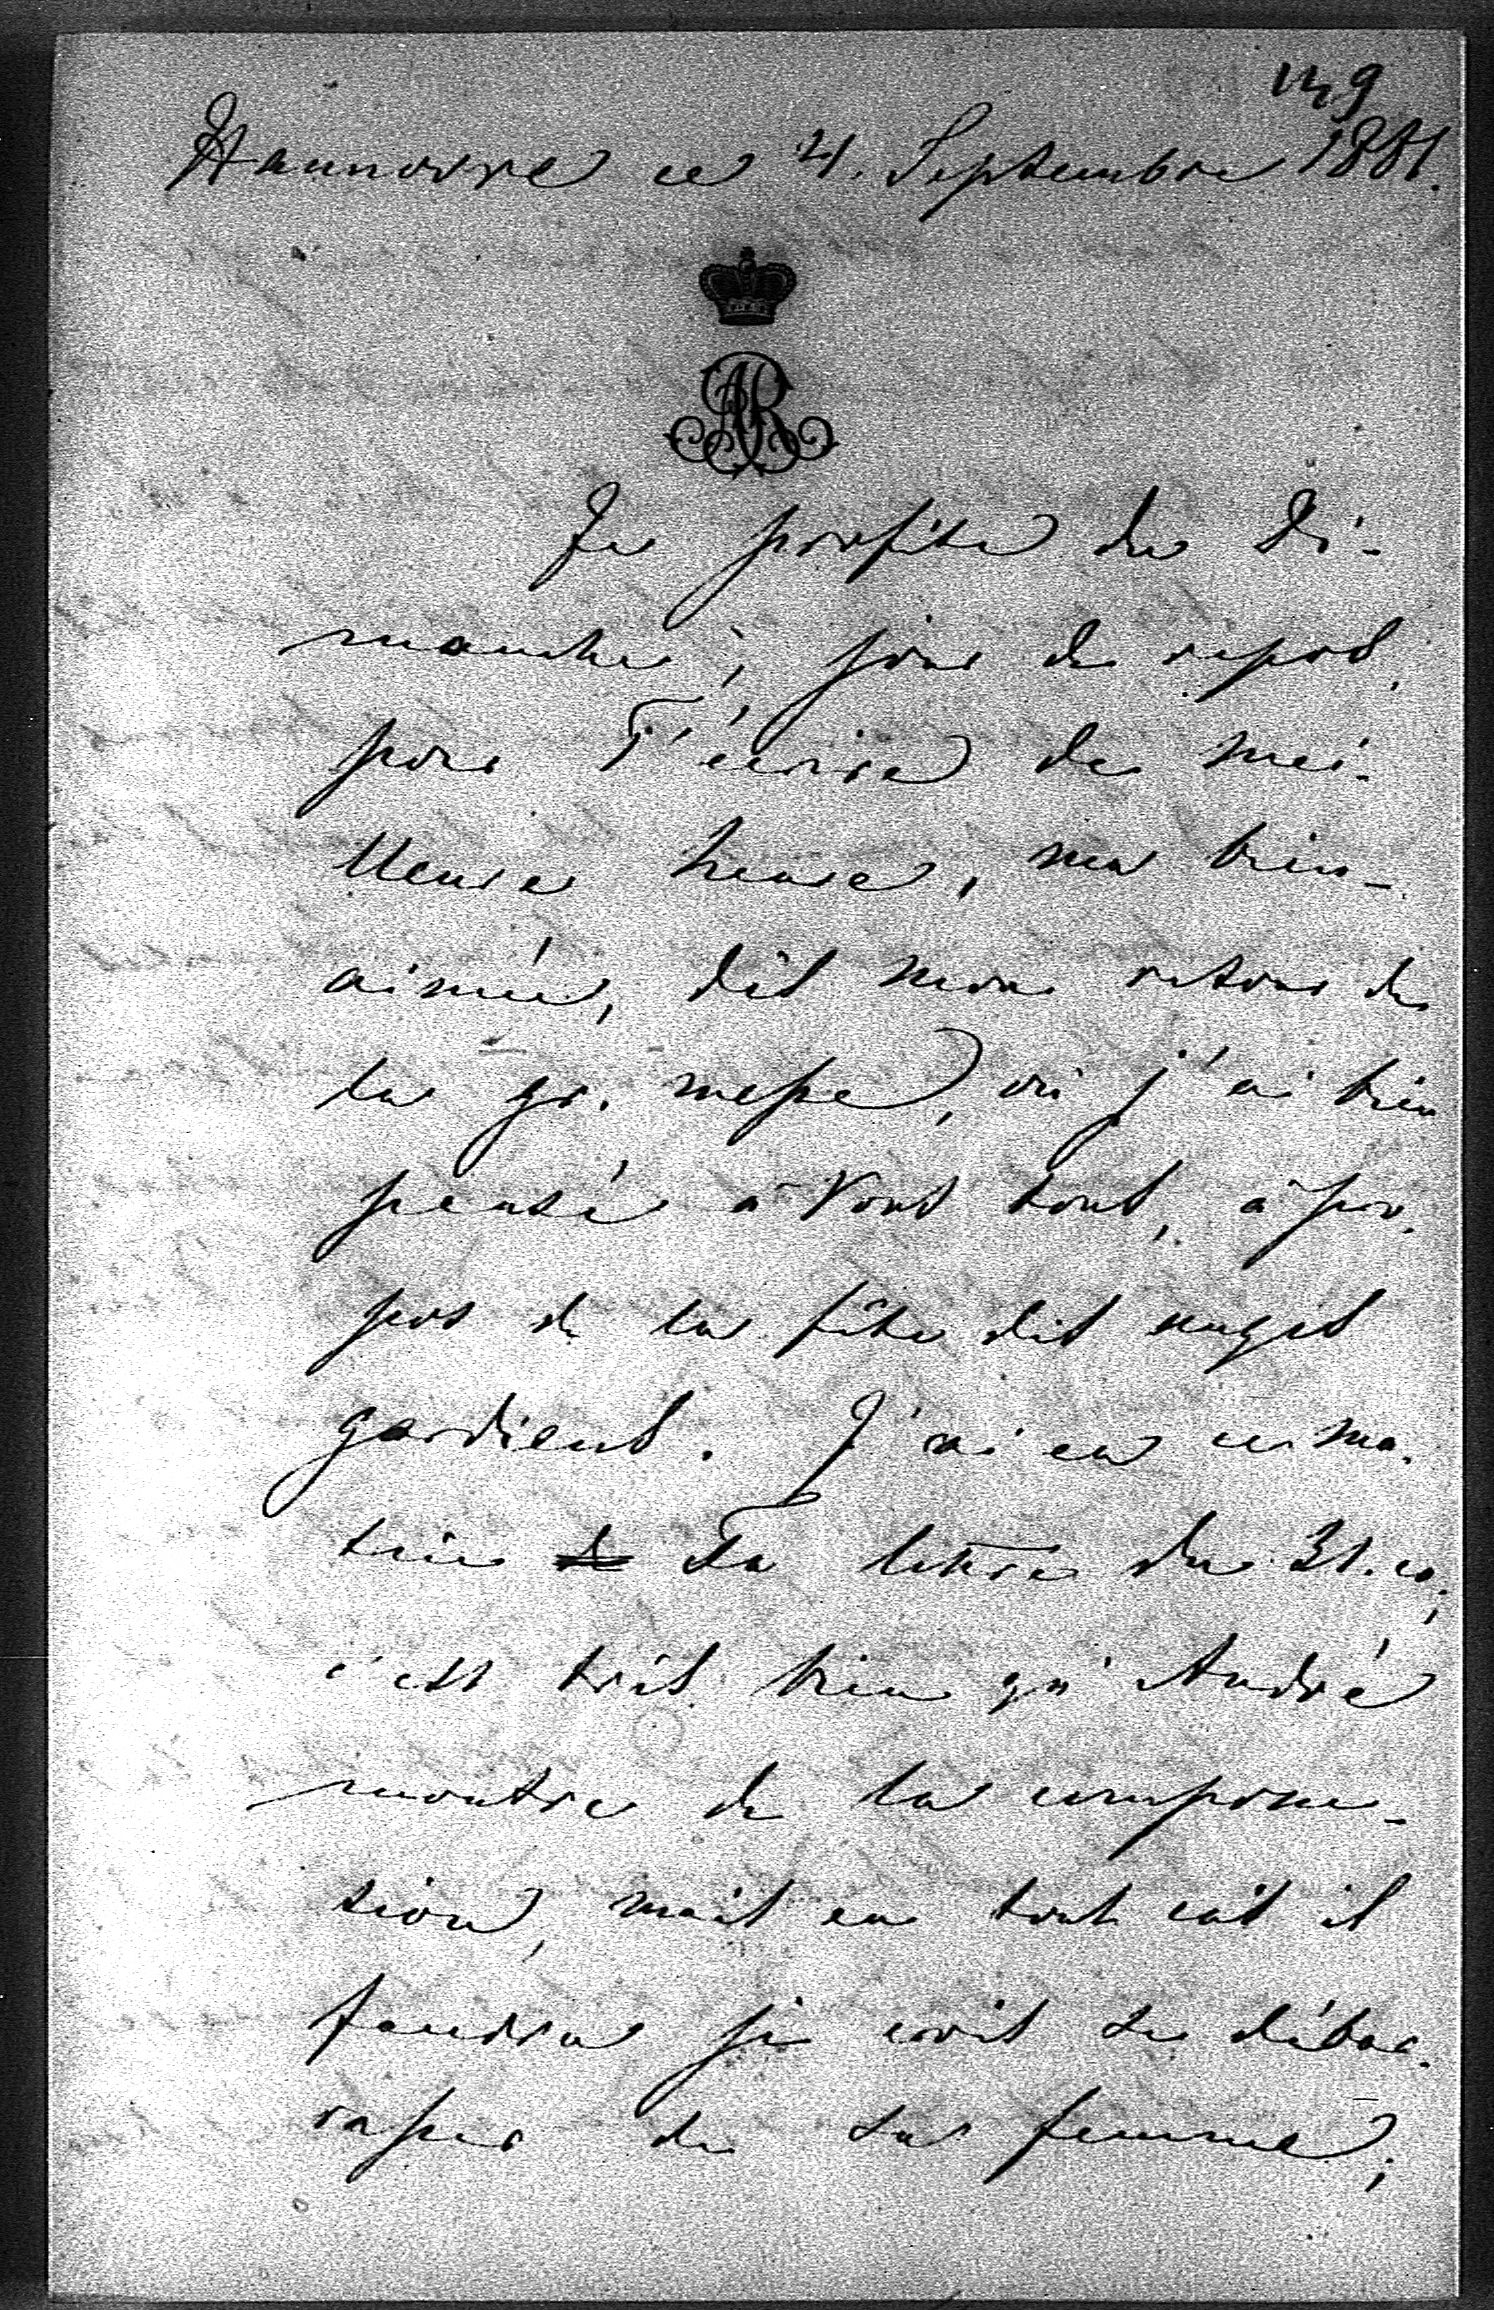 149
Hannovre ce 4. Septembre 1881.
AR
Je profite du Di-
manche, jour de repos,
pour T'écrire de mei-
lleure heure, ma bien-
aimée, dès mon retour de
la gr. messe, où j'ai bien
pensé à Vous tous, à pro-
pos de la fête des anges
gardiens. J'ai eu ce ma-
tin Ta lettre du 31. co;
c'est très bien qu'André
montre de la componc-
tion, mais en tout cas il
faudra je crois se débar-
rasser de sa femme;